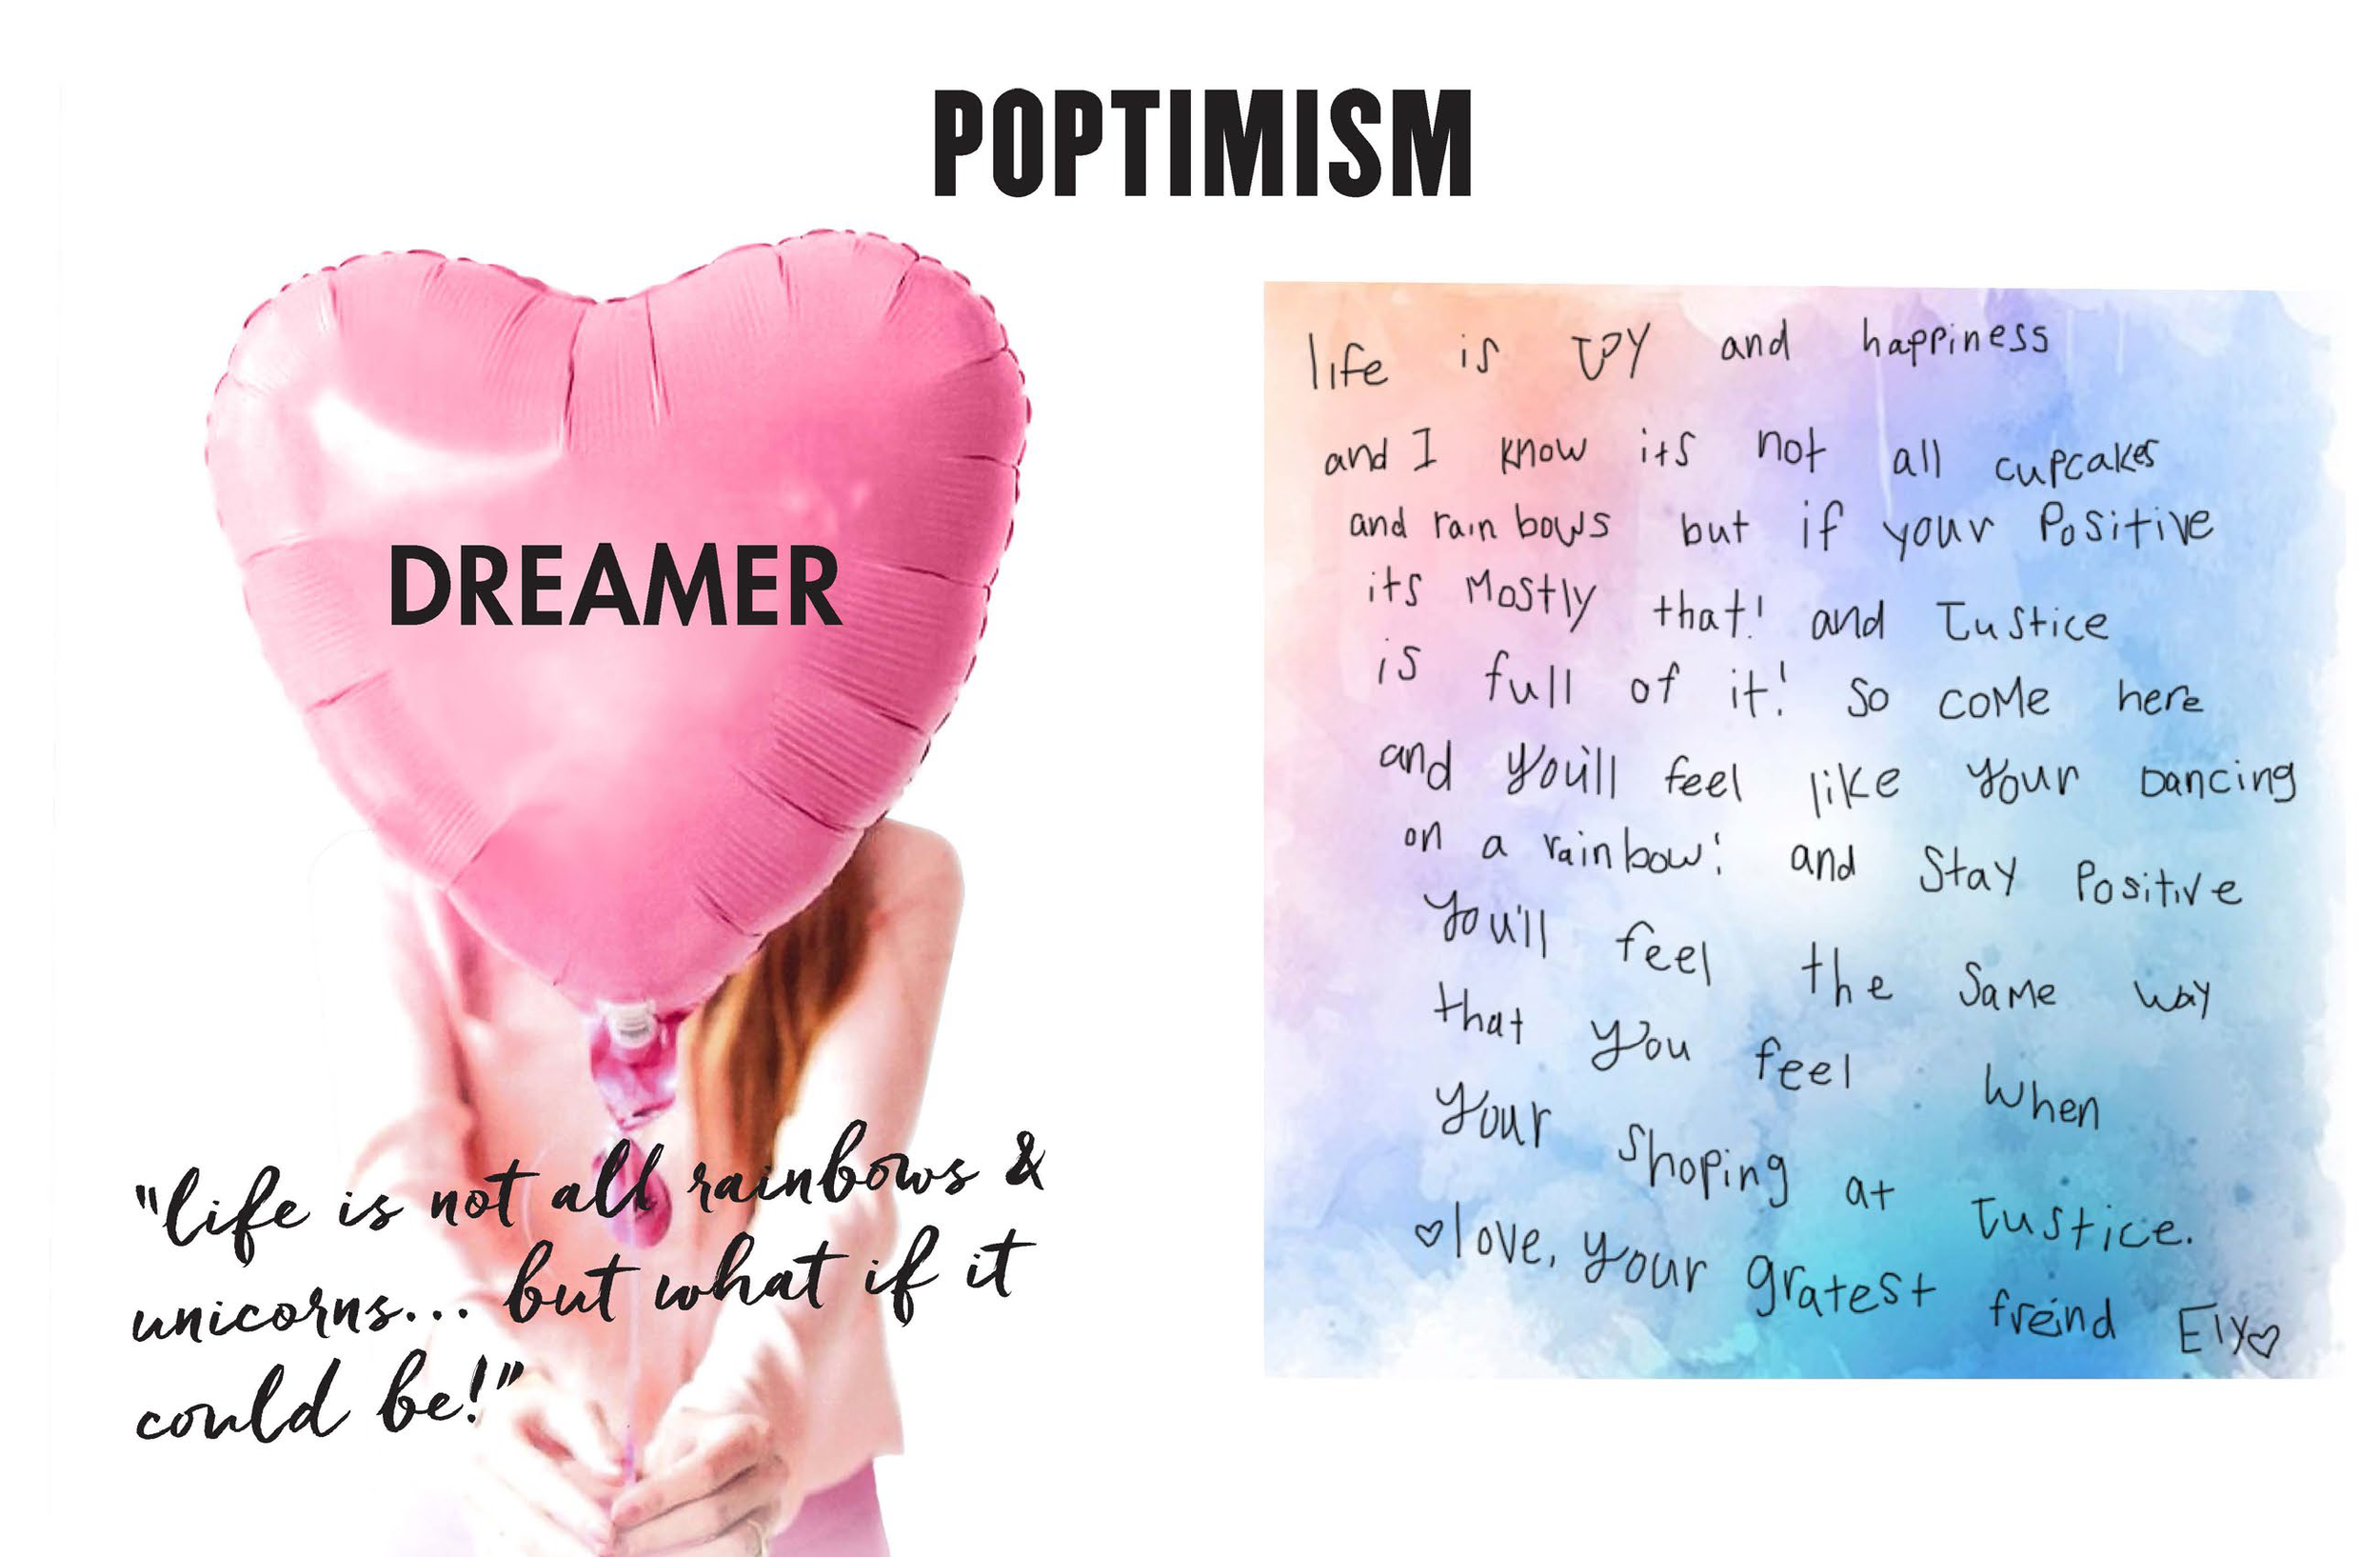 POPTIMISM
DREAMER
"life is not all rainbows &
unicorns... but what if it
could be!"
life is Joy and happiness
and I know its not all cupcakes
and rain bows but if your Positive
its Mostly that! and Justice
is full of it! So coMe here
and you'll feel like your Dancing
on a rainbow! and Stay Positive
you'll feel the SaMe way
that you feel when
your Shoping at Justice.
♡love, your gratest freind Ely♡